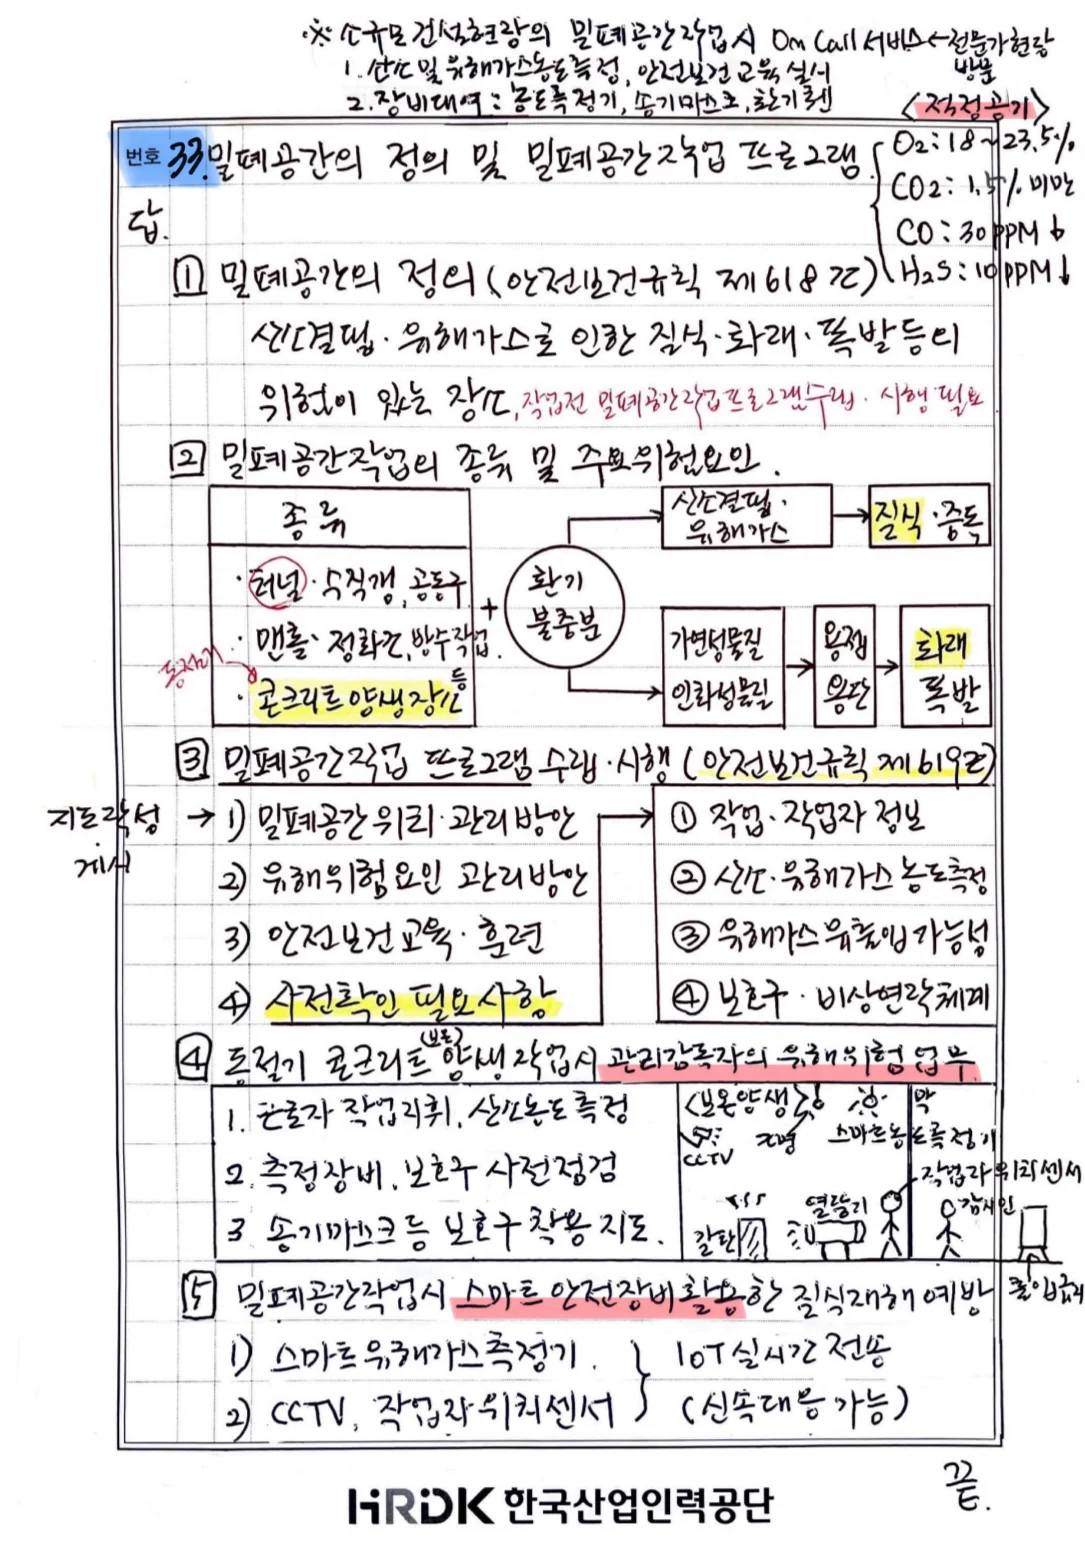 ※ 소규모 건설현장의 밀폐공간작업시 On Call 서비스 ← 전문가현장 방문
1. 산소 및 유해가스농도측정, 안전보건교육 실시
2. 장비대여 : 농도측정기, 송기마스크, 환기팬
<적정공기>
O2 : 18~23.5%
CO2 : 1.5% 미만
CO : 30PPM↓
H2S : 10PPM↓
번호 33. 밀폐공간의 정의 및 밀폐공간작업 프로그램
답.
1 밀폐공간의 정의 (안전보건규칙 제618조)
산소결핍·유해가스로 인한 질식·화재·폭발등의
위험이 있는 장소, 작업전 밀폐공간작업프로그램수립·시행 필요
2 밀폐공간작업의 종류 및 주요위험요인.
종류
· 터널·수직갱, 공동구
· 맨홀·정화조, 방수작업.
동절기
· 콘크리트양생장소 등
+
환기
불충분
산소결핍·
유해가스
질식·중독
가연성물질
인화성물질
용접
용단
화재
폭발
3 밀폐공간작업 프로그램 수립·시행 (안전보건규칙 제619조)
지도작성 → 1) 밀폐공간위치·관리방안
게시
2) 유해위험요인 관리방안
3) 안전보건교육·훈련
4) 사전확인 필요사항
① 작업·작업자 정보
② 산소·유해가스 농도측정
③ 유해가스 유출입 가능성
④ 보호구·비상연락체계
4 동절기 콘크리트 (보온) 양생작업시 관리감독자의 유해위험업무.
1. 근로자 작업지휘, 산소농도측정
2. 측정장비, 보호구 사전점검
3. 송기마스크등 보호구 착용 지도.
<보온양생>
막
CCTV
조명
스마트농도측정기
작업자위치센서
감시인
열풍기
갈탄
출입금지
5 밀폐공간작업시 스마트 안전장비활용한 질식재해 예방
1) 스마트유해가스측정기.
2) CCTV, 작업자위치센서
IoT 실시간 전송
(신속대응가능)
끝.
HRDK 한국산업인력공단